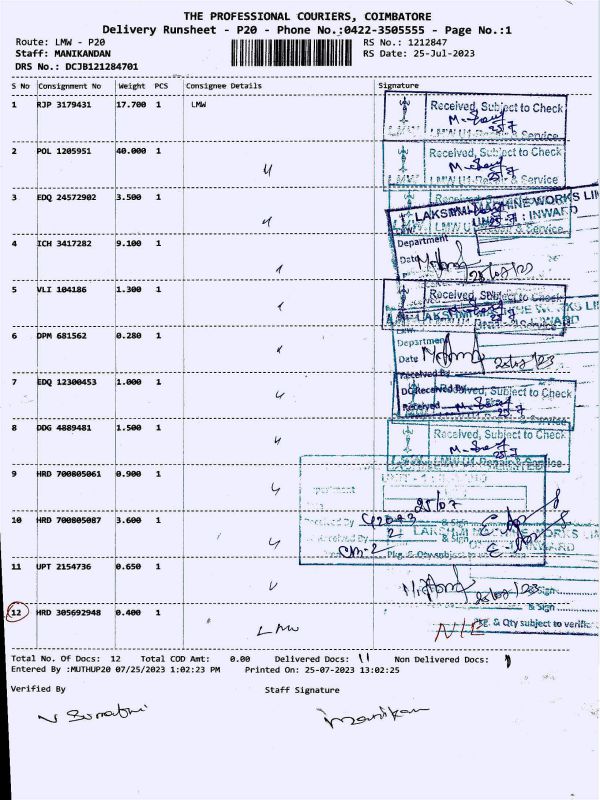 THE PROFESSIONAL COURIERS, COIMBATORE
Delivery Runsheet - P20 - Phone No.:0422-3505555 - Page No.:1
Route: LMW - P20
RS No.: 1212847
Staff: MANIKANDAN
RS Date: 25-Jul-2023
DRS No.: DCJB121284701
S No Consignment No Weight PCS Consignee Details Signature
1 RJP 3179431 17.700 1 LMW
Received, Subject to Check
25/7
LMW U1-Repair & Service
2 POL 1205951 40.000 1
Received, Subject to Check
25/7
LMW U1-Repair & Service
3 EDQ 24572902 3.500 1
LAKSHMI MACHINE WORKS LIM
: INWARD
4 ICH 3417282 9.100 1
Department
Date
25/07/23
5 VLI 104186 1.300 1
Received, Subject to Check
6 DPM 681562 0.280 1
Department
Date 25/07/23
Received By
7 EDQ 12300453 1.000 1
Received, Subject to Check
25/7
8 DDG 4889481 1.500 1
Received, Subject to Check
25/7
LMW U1-Repair & Service
9 HRD 700805061 0.900 1
25/07
10 HRD 700805087 3.600 1
& Sign
LAKSHMI MACHINE WORKS LIM
INWARD
11 UPT 2154736 0.650 1
25/07/23
& Sign
12 HRD 305692948 0.400 1 LMW
& Qty subject to verific
Total No. Of Docs: 12 Total COD Amt: 0.00 Delivered Docs: 11 Non Delivered Docs: 1
Entered By :MUTHUP20 07/25/2023 1:02:23 PM Printed On: 25-07-2023 13:02:25
Verified By Staff Signature